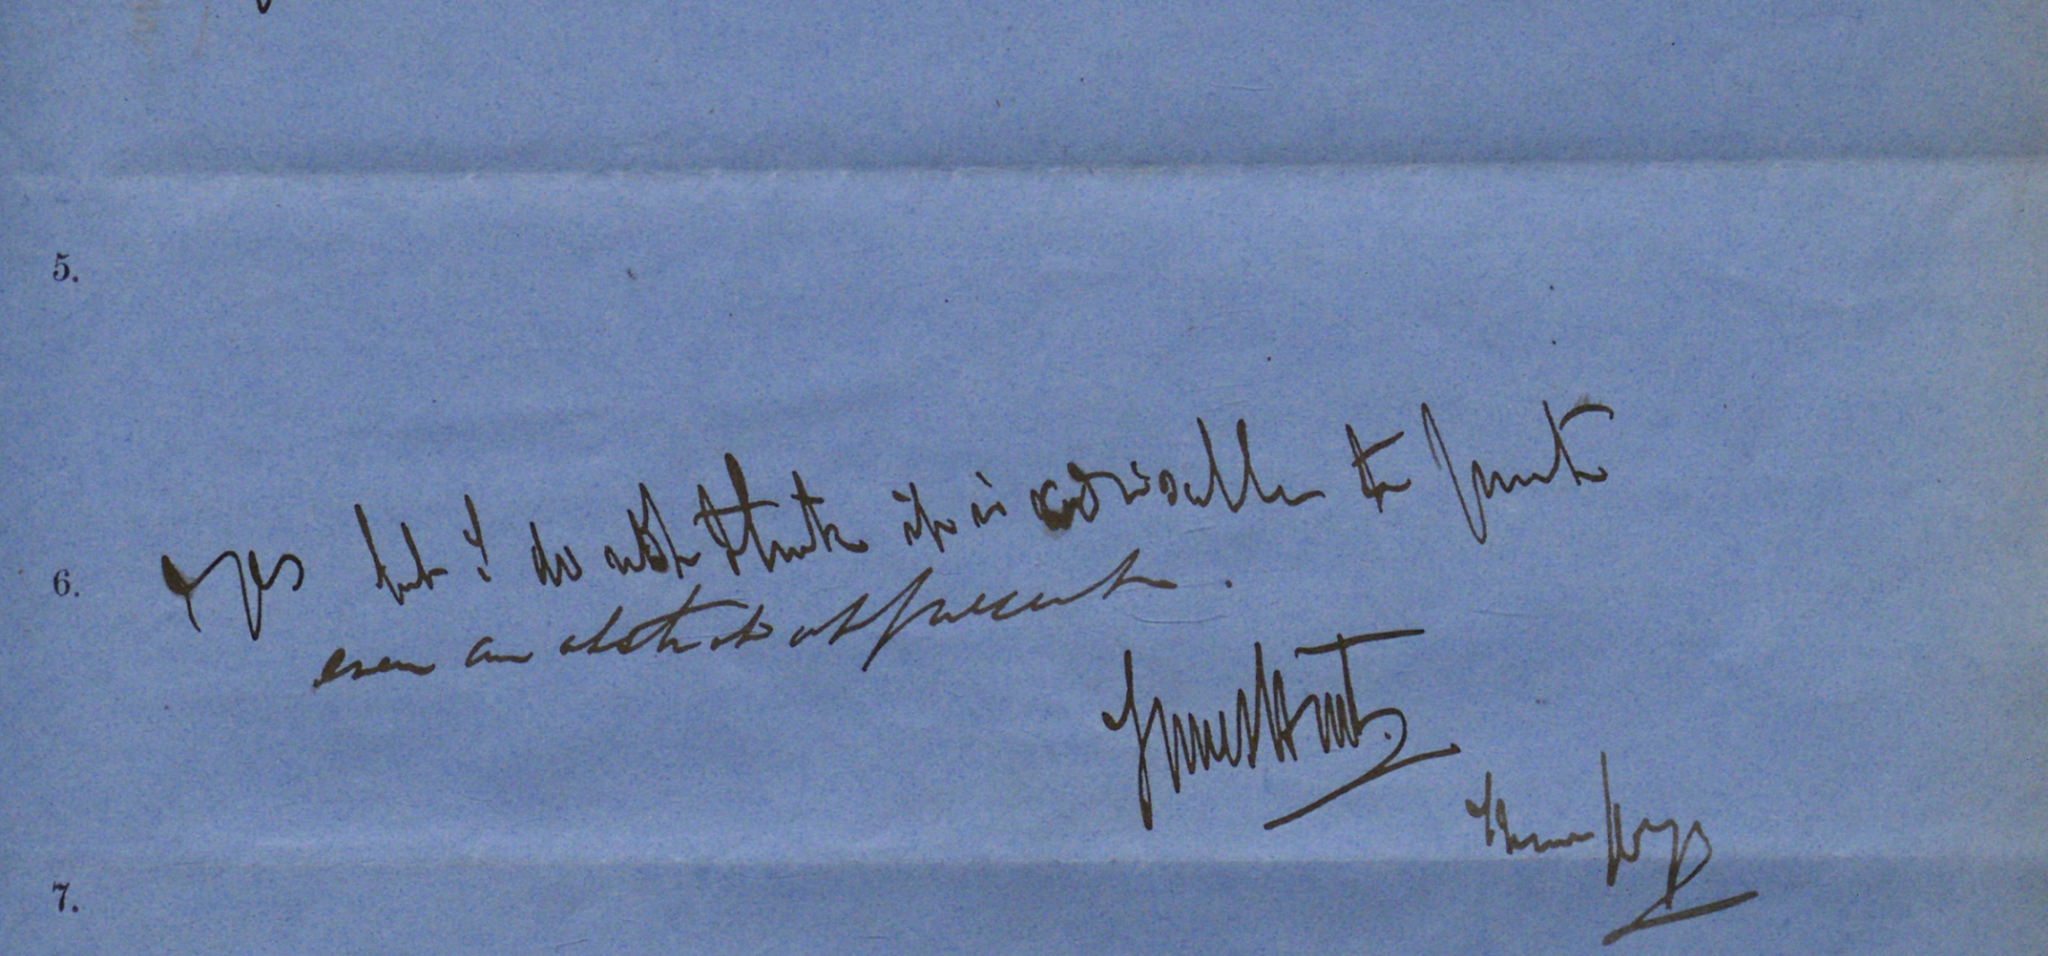 5.
6. Yes but I do not think it is advisable to print
even an abstract at present.
James Hunt.
7.